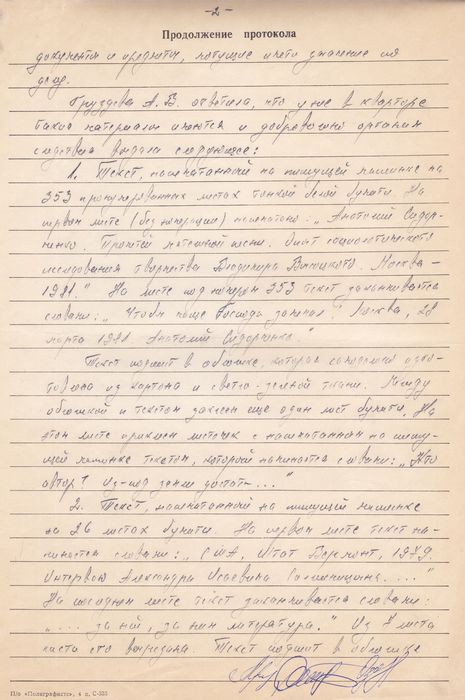 - 2 -
Продолжение протокола
документы и предметы, могущие иметь значение для
дела.
Груздева А. В. ответила, что у нее в квартире
такие материалы имеются и добровольно органам
следствия выдала следующее:
1. Текст, напечатанный на пишущей машинке на
353 пронумерованных листах тонкой белой бумаги. На
первом листе (без нумерации) напечатано: „Анатолий Сидор-
ченко. Прошей мятежной песни. Опыт социологического
исследования творчества Владимира Высоцкого. Москва –
1981." На листе под номером 353 текст заканчивается
словами: „Чтобы чаще Господа замечал! Москва, 28
марта 1981. Анатолий Сидорченко."
Текст подшит в обложке, которая самодельно изго-
товлена из картона и светло-зеленой ткани. Между
обложкой и текстом вклеен еще один лист бумаги. На
этом листе приклеен листочек с напечатанным на пишу-
щей машинке текстом, который начинается словами: „Кто
автор? Из-под земли достать..."
2. Текст, напечатанный на пишущей машинке
на 26 листах бумаги. На первом листе текст на-
чинается словами: „США, Штат Вермонт, 1979.
Интервью Александра Исаевича Солженицына...."
На последнем листе текст заканчивается словами:
„... за ней, за ним литература." Из 8 листа
часть его вырезана. Текст подшит в обложке
П/о «Полиграфист», 4 п. С-335